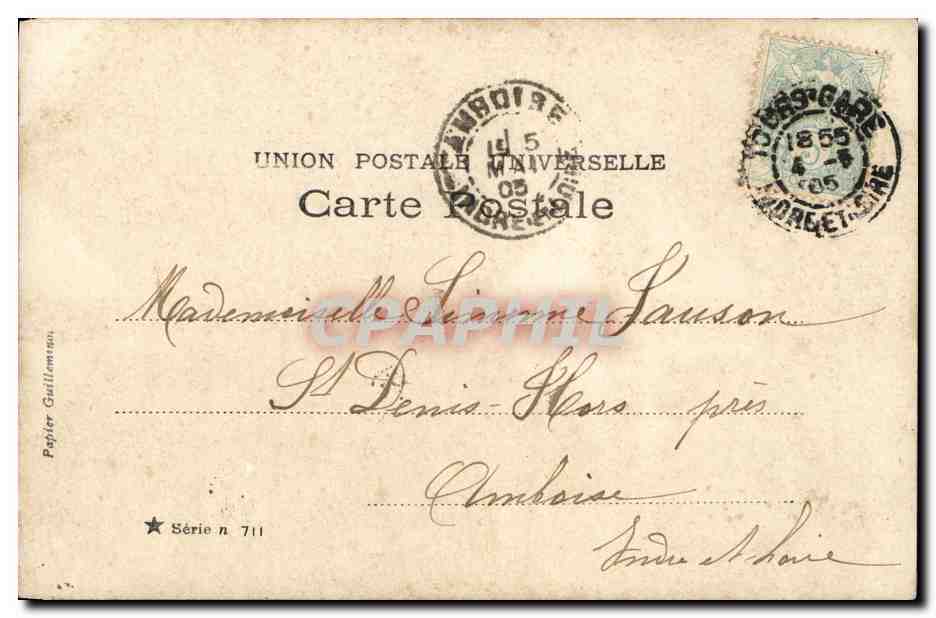 TOURS-GARE
18 55
4 - 4
05
INDRE-ET-LOIRE
AMBOISE
5
MAI
05
INDRE-ET-LOIRE
UNION POSTALE UNIVERSELLE
Carte Postale
CPAPHIL
Mademoiselle Simonne Sauson
St Denis-Hors près
Amboise
Indre et Loire
Papier Guilleminot
★ Série n 711